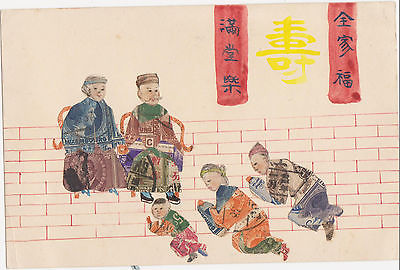 全家福
壽
滿堂榮